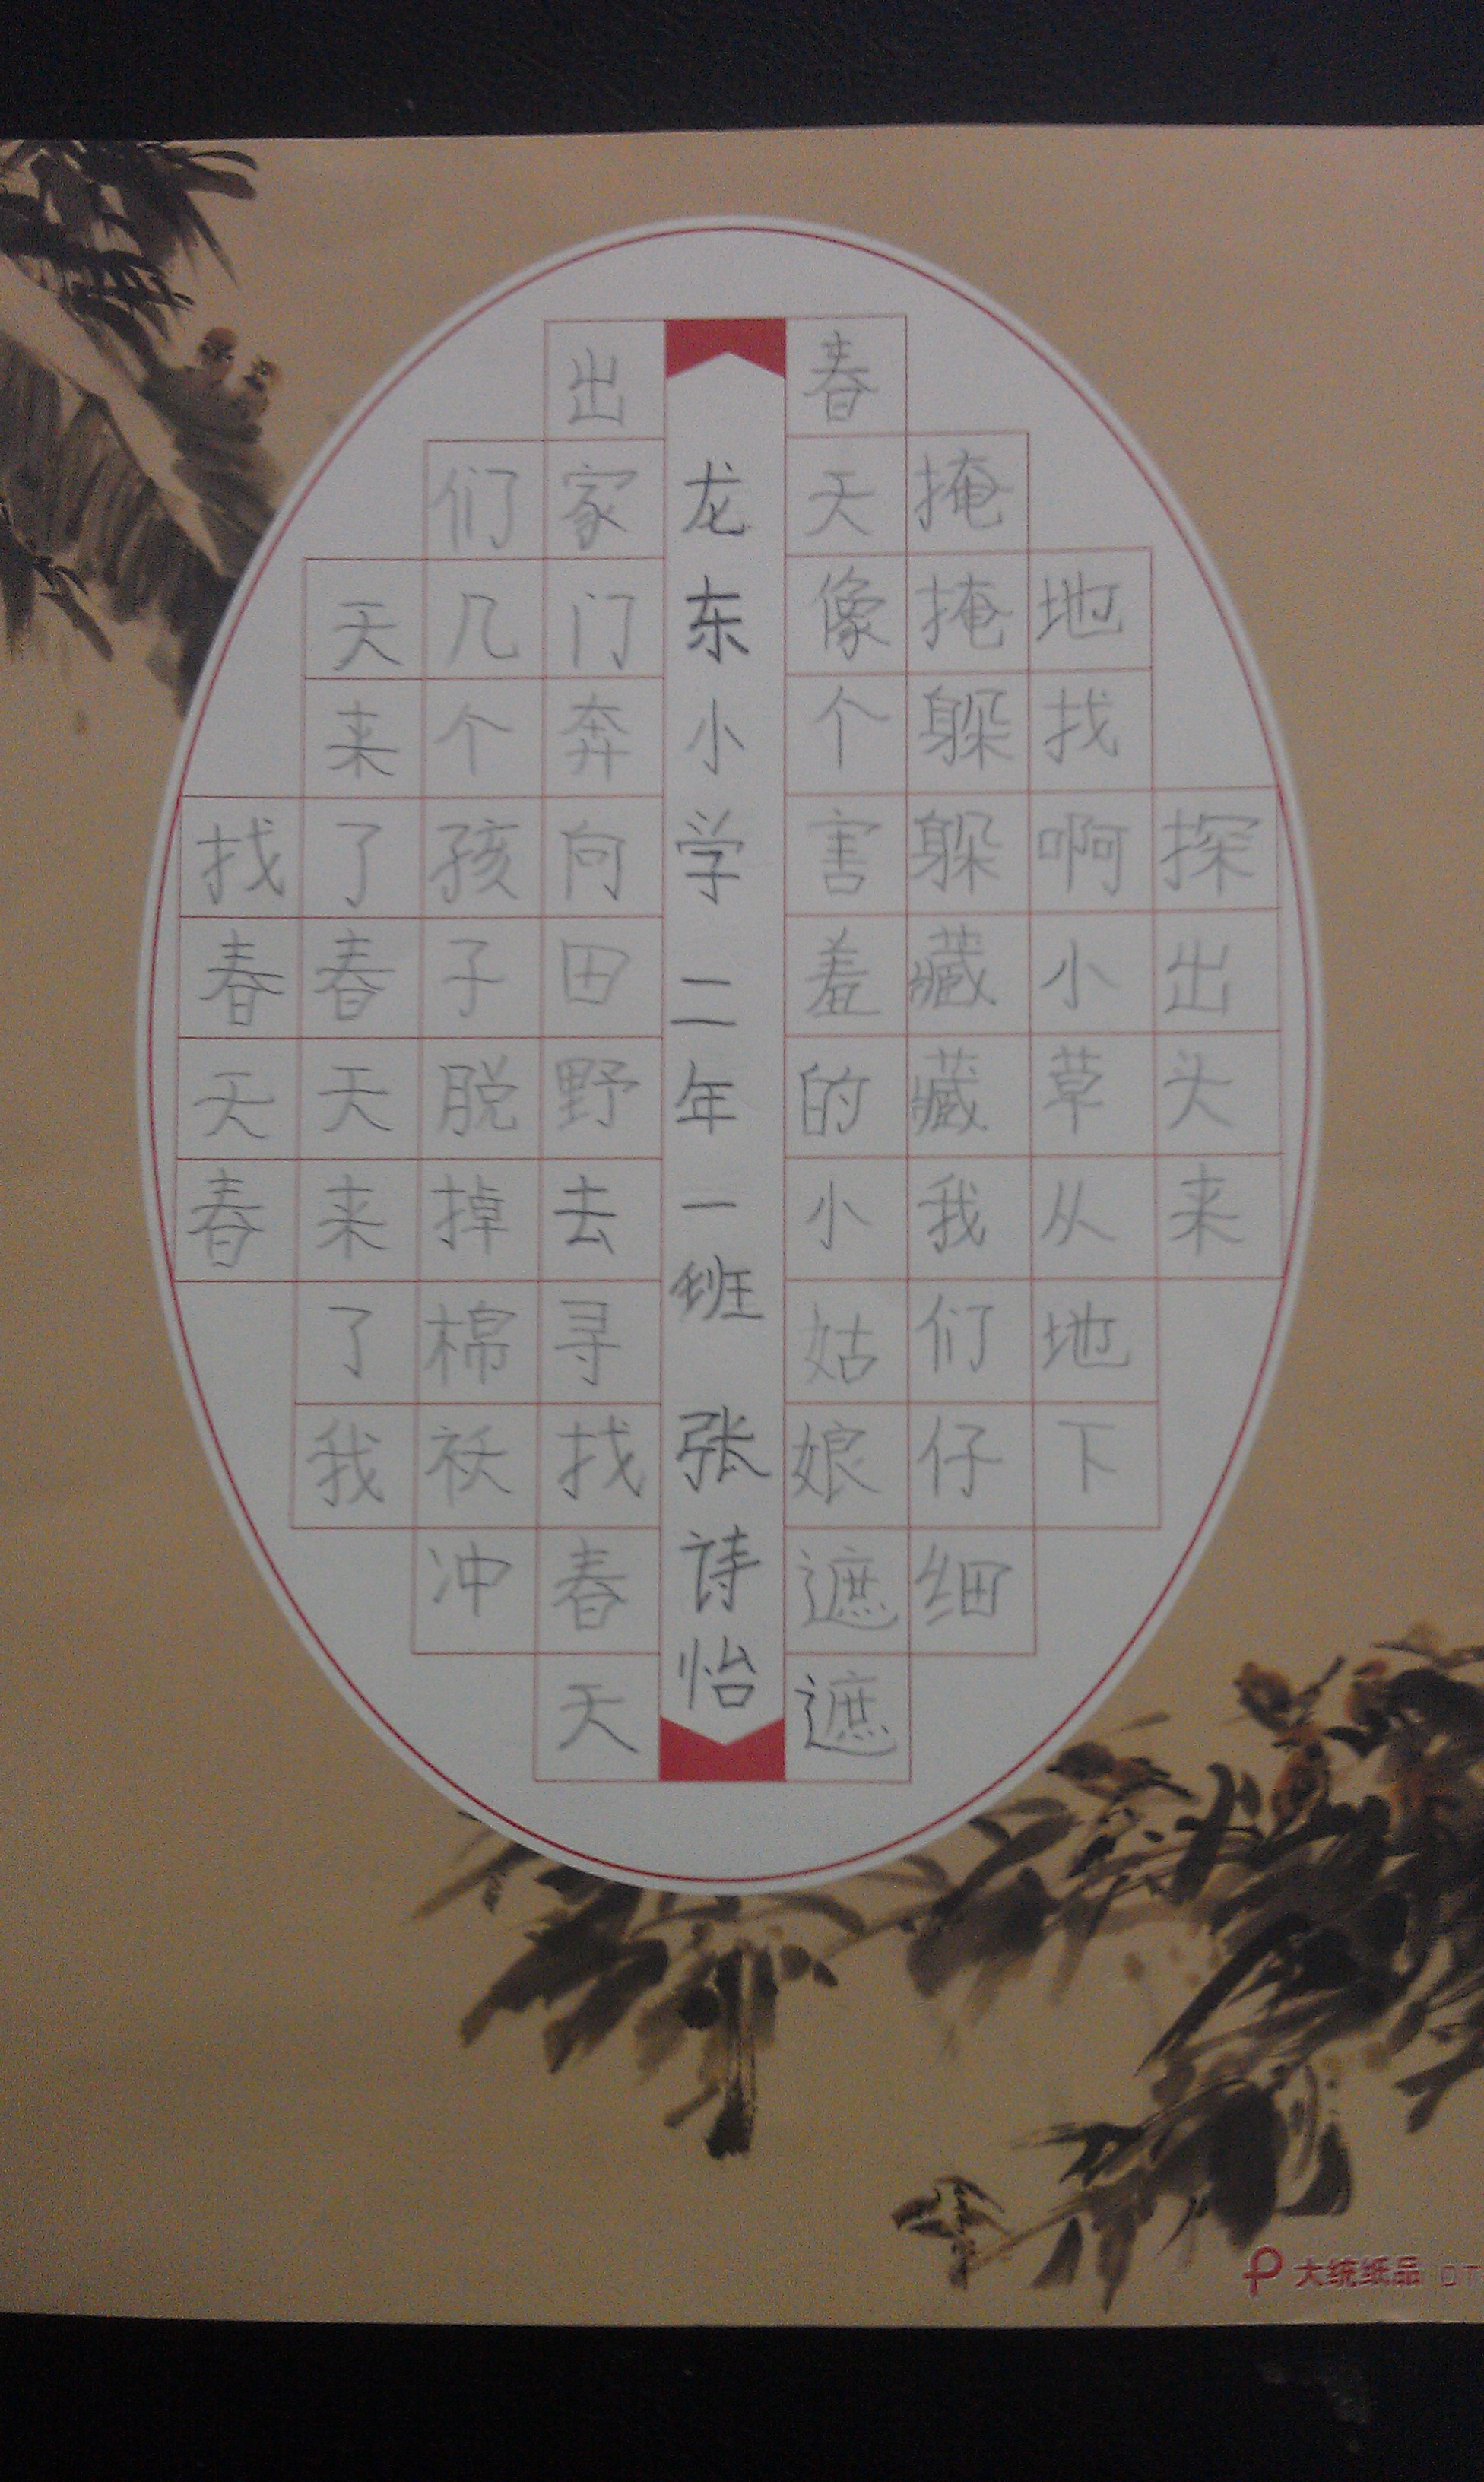 找春天春
天来了春天来了我
们几个孩子脱掉棉袄冲
出家门奔向田野去寻找春天
龙东小学 二年一班 张诗怡
春天像个害羞的小姑娘遮遮
掩掩躲躲藏藏我们仔细
地找啊小草从地下
探出头来
大统纸品